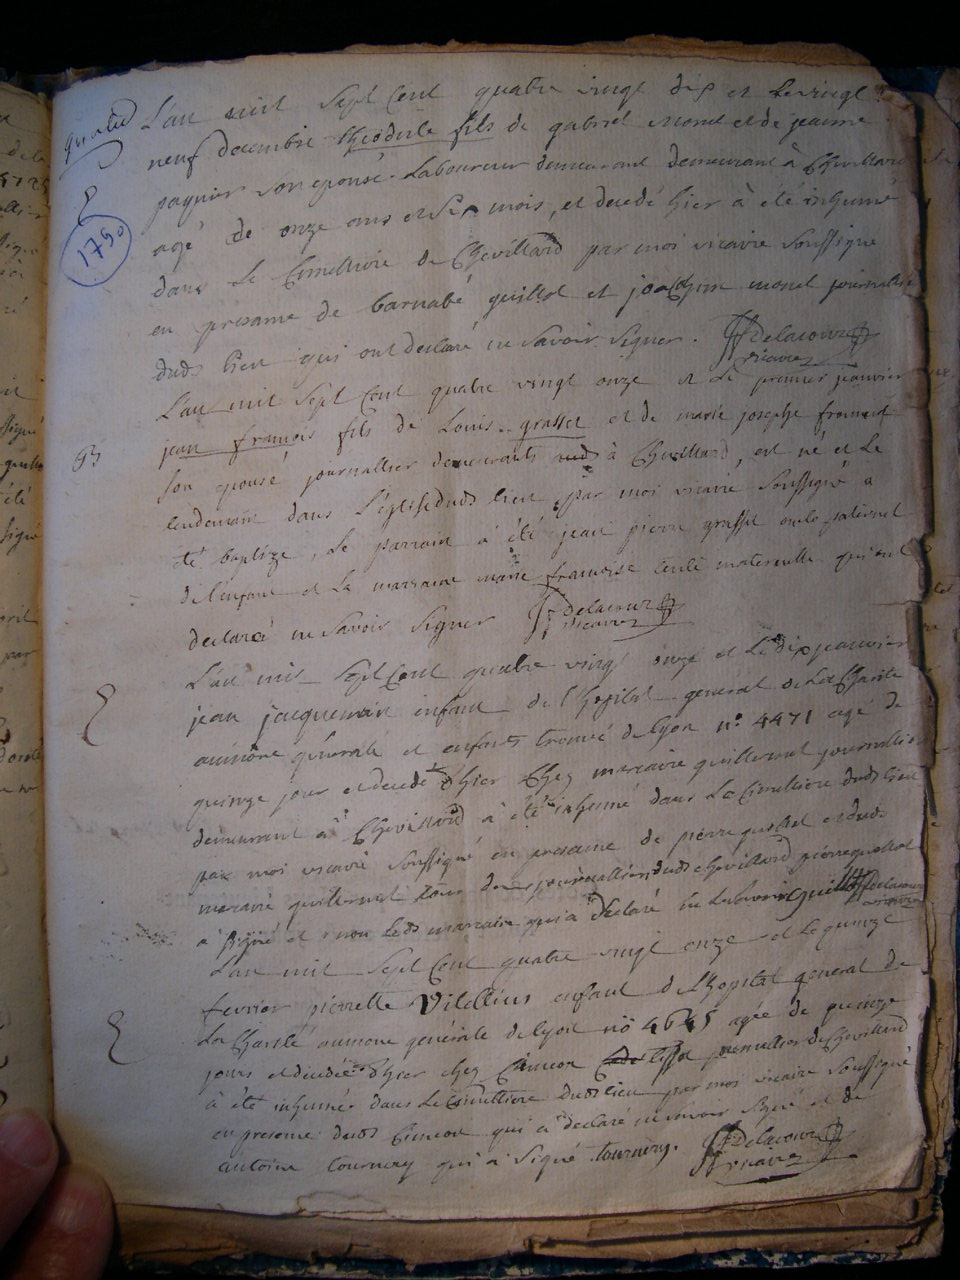 L'an mil sept Cent quatre vingt dix et le vingt
neuf decembre théodule fils de gabriel monet et de jeanne
paquier son epouse Laboureur demeurant demeurant à Chevillard
agé de onze ans et six mois, et decedé hier à été inhumé
dans le Cimettiere de Chevillard par moi vicaire soussigné
en presance de barnabé guillot et joachim monet journallier
dud lieu qui ont declaré ne savoir signer. Delacour
vicaire
1790
L'an mil sept Cent quatre vingt onze et le premier janvier
jean francois fils de Louis grasset et de marie josephe
son epouse journallier demeurants à Chevillard, est né et le
lendemain dans l'église dud lieu par moi vicaire soussigné a
été baptize, le parrain à été jean pierre grasset oncle paternel
de l'enfant et la marraine marie francoise tente maternelle qui ont
declaré ne savoir signer Delacour
vicaire
L'an mil sept Cent quatre vingt onze et le dix janvier
jean jacquemin enfant de l'hopital general de la Charité
aumône générale et enfants trouvé de lyon n° 4471 agé de
quinze jour et decedé d'hier chez marcaire guillermet journallier
demeurant à Chevillard à été inhumé dans le Cimettiere dud lieu
par moi vicaire soussigné en presance de pierre et dud
marcaire guillermet tous deux journalliers dud chevillard pierre
à signé et non led marcaire qui à declaré ne le savoir Delacour
vicaire
L'an mil sept Cent quatre vingt onze et le quinze
fevrier pierrette Vilellius enfant de l'hopital general de
la Charité aumone générale de lyon no 4645 agée de quinze
jours et decedée d'hier chez Simeon tissot journallier de Chevillard
à été inhumé dans le Cimettiere dud lieu par moi vicaire soussigné
en presence dud Simeon qui à declaré ne savoir signé et de
antoine tournery qui à signé. tournery. Delacour
vicaire